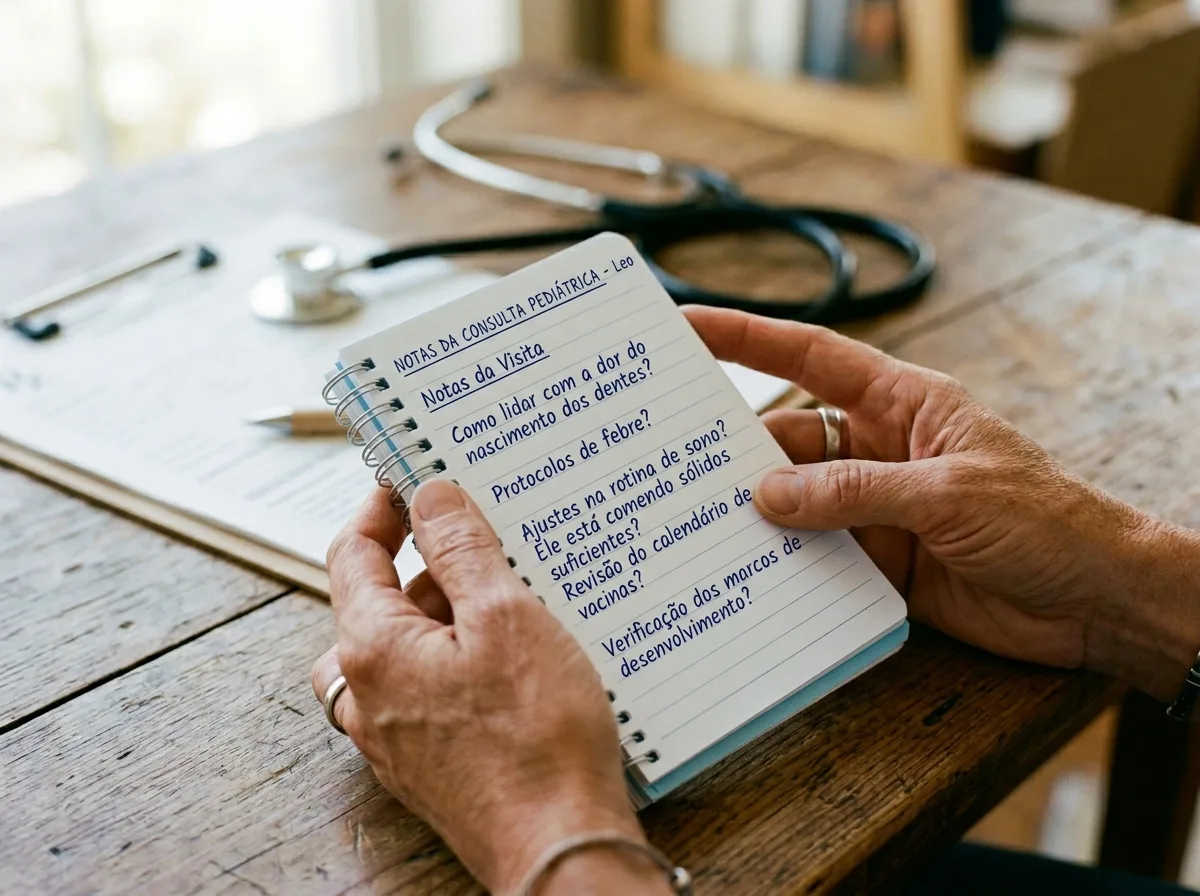 NOTAS DA CONSULTA PEDIÁTRICA - Leo
Notas da Visita
Como lidar com a dor do
nascimento dos dentes?
Protocolos de febre?
Ajustes na rotina de sono?
Ele está comendo sólidos
suficientes?
Revisão do calendário de
vacinas?
Verificação dos marcos de
desenvolvimento?